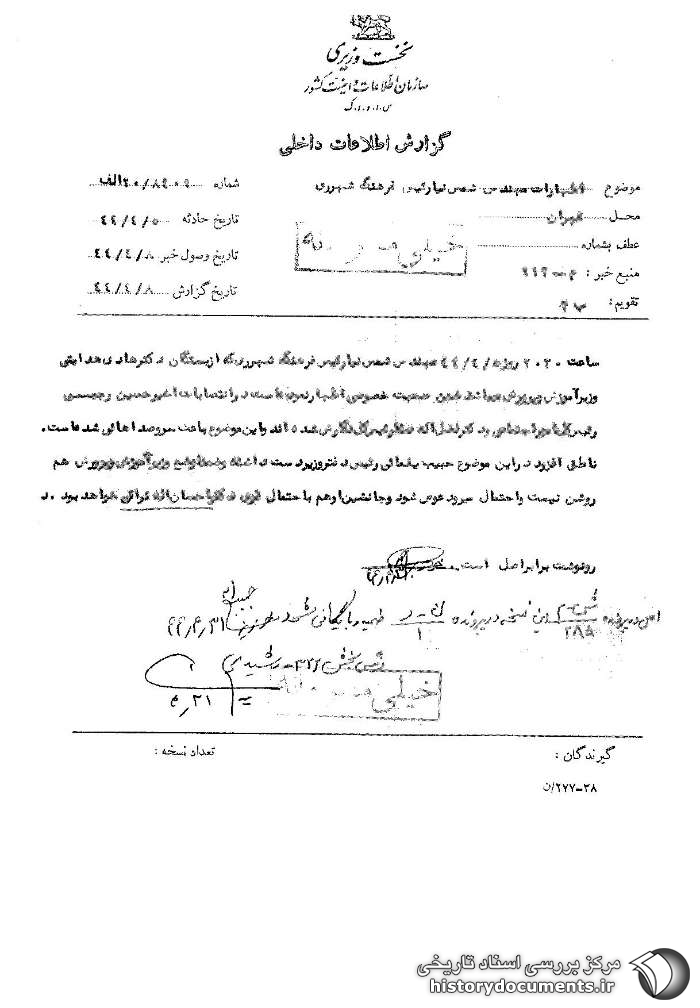 نخست وزیری
سازمان اطلاعات و امنیت کشور
س.ا.و.ا.ک
گزارش اطلاعات داخلی
موضوع اظهارات مهندس شمس نیا رئیس فرهنگ شهرری
شماره ۲۰/۸۴۰۹ الف
محل تهران
تاریخ حادثه ۴۴/۴/۵
عطف بشماره
تاریخ وصول خبر ۴۴/۴/۸
منبع خبر :
تاریخ گزارش ۴۴/۴/۸
تقویم :
خیلی محرمانه
ساعت ۲۰۳۰ روز ۴۴/۴/۵ مهندس شمس نیا رئیس فرهنگ شهرری که از بستگان دکتر هادی هدایتی
وزیر آموزش و پرورش میباشد ضمن صحبت خصوصی اظهار نموده است در انتصابات اخیر حسین رجبی
رئیس و دکتر شده اند و این موضوع باعث سر و صداهائی شده است.
ناطق افزود در این موضوع حبیب یغمائی رئیس دفتر وزیر دست داشته و وضع وزیر آموزش و پرورش هم
روشن نیست و احتمال میرود عوض شود و جانشین او هم با احتمال قوی دکتر احسان اله نراقی خواهد بود . د
رونوشت برابر اصل است .
اصل در پرونده ۲۸۵ این نسخه در پرونده ۱ ضمیمه و بایگانی شود ۴۴/۴/۳۱
رئیس بخش ۳۲۱ - رشیدی
۴/۳۱
خیلی محرمانه
گیرندگان :
تعداد نسخه :
۲۷۷-۳۸/ن
مرکز بررسی اسناد تاریخی
historydocuments.ir